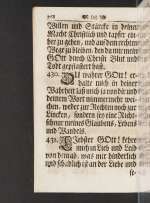 Willen und Stärcke in deiner
Macht Christlich und tapfer ein-
her zu gehen, und aus dem rechten
Wege zu bleiben, den du mir mein
GOtt durch Christi Blut und
Todt gepflastert hast.
430. DU wahrer GOtt! er-
halte mich in deiner
Wahrheit laß mich ja von dir und
deinem Wort nimmermehr wei-
chen, weder zur Rechten noch zur
Lincken, sondern sey eine Richt-
schnur meines Glaubens, Lebens
und Wandels.
431. LIebster GOtt! kehre
mich in Lieb und Leid
von dem ab, was mir hinderlich
und schädlich ist an der Liebe und